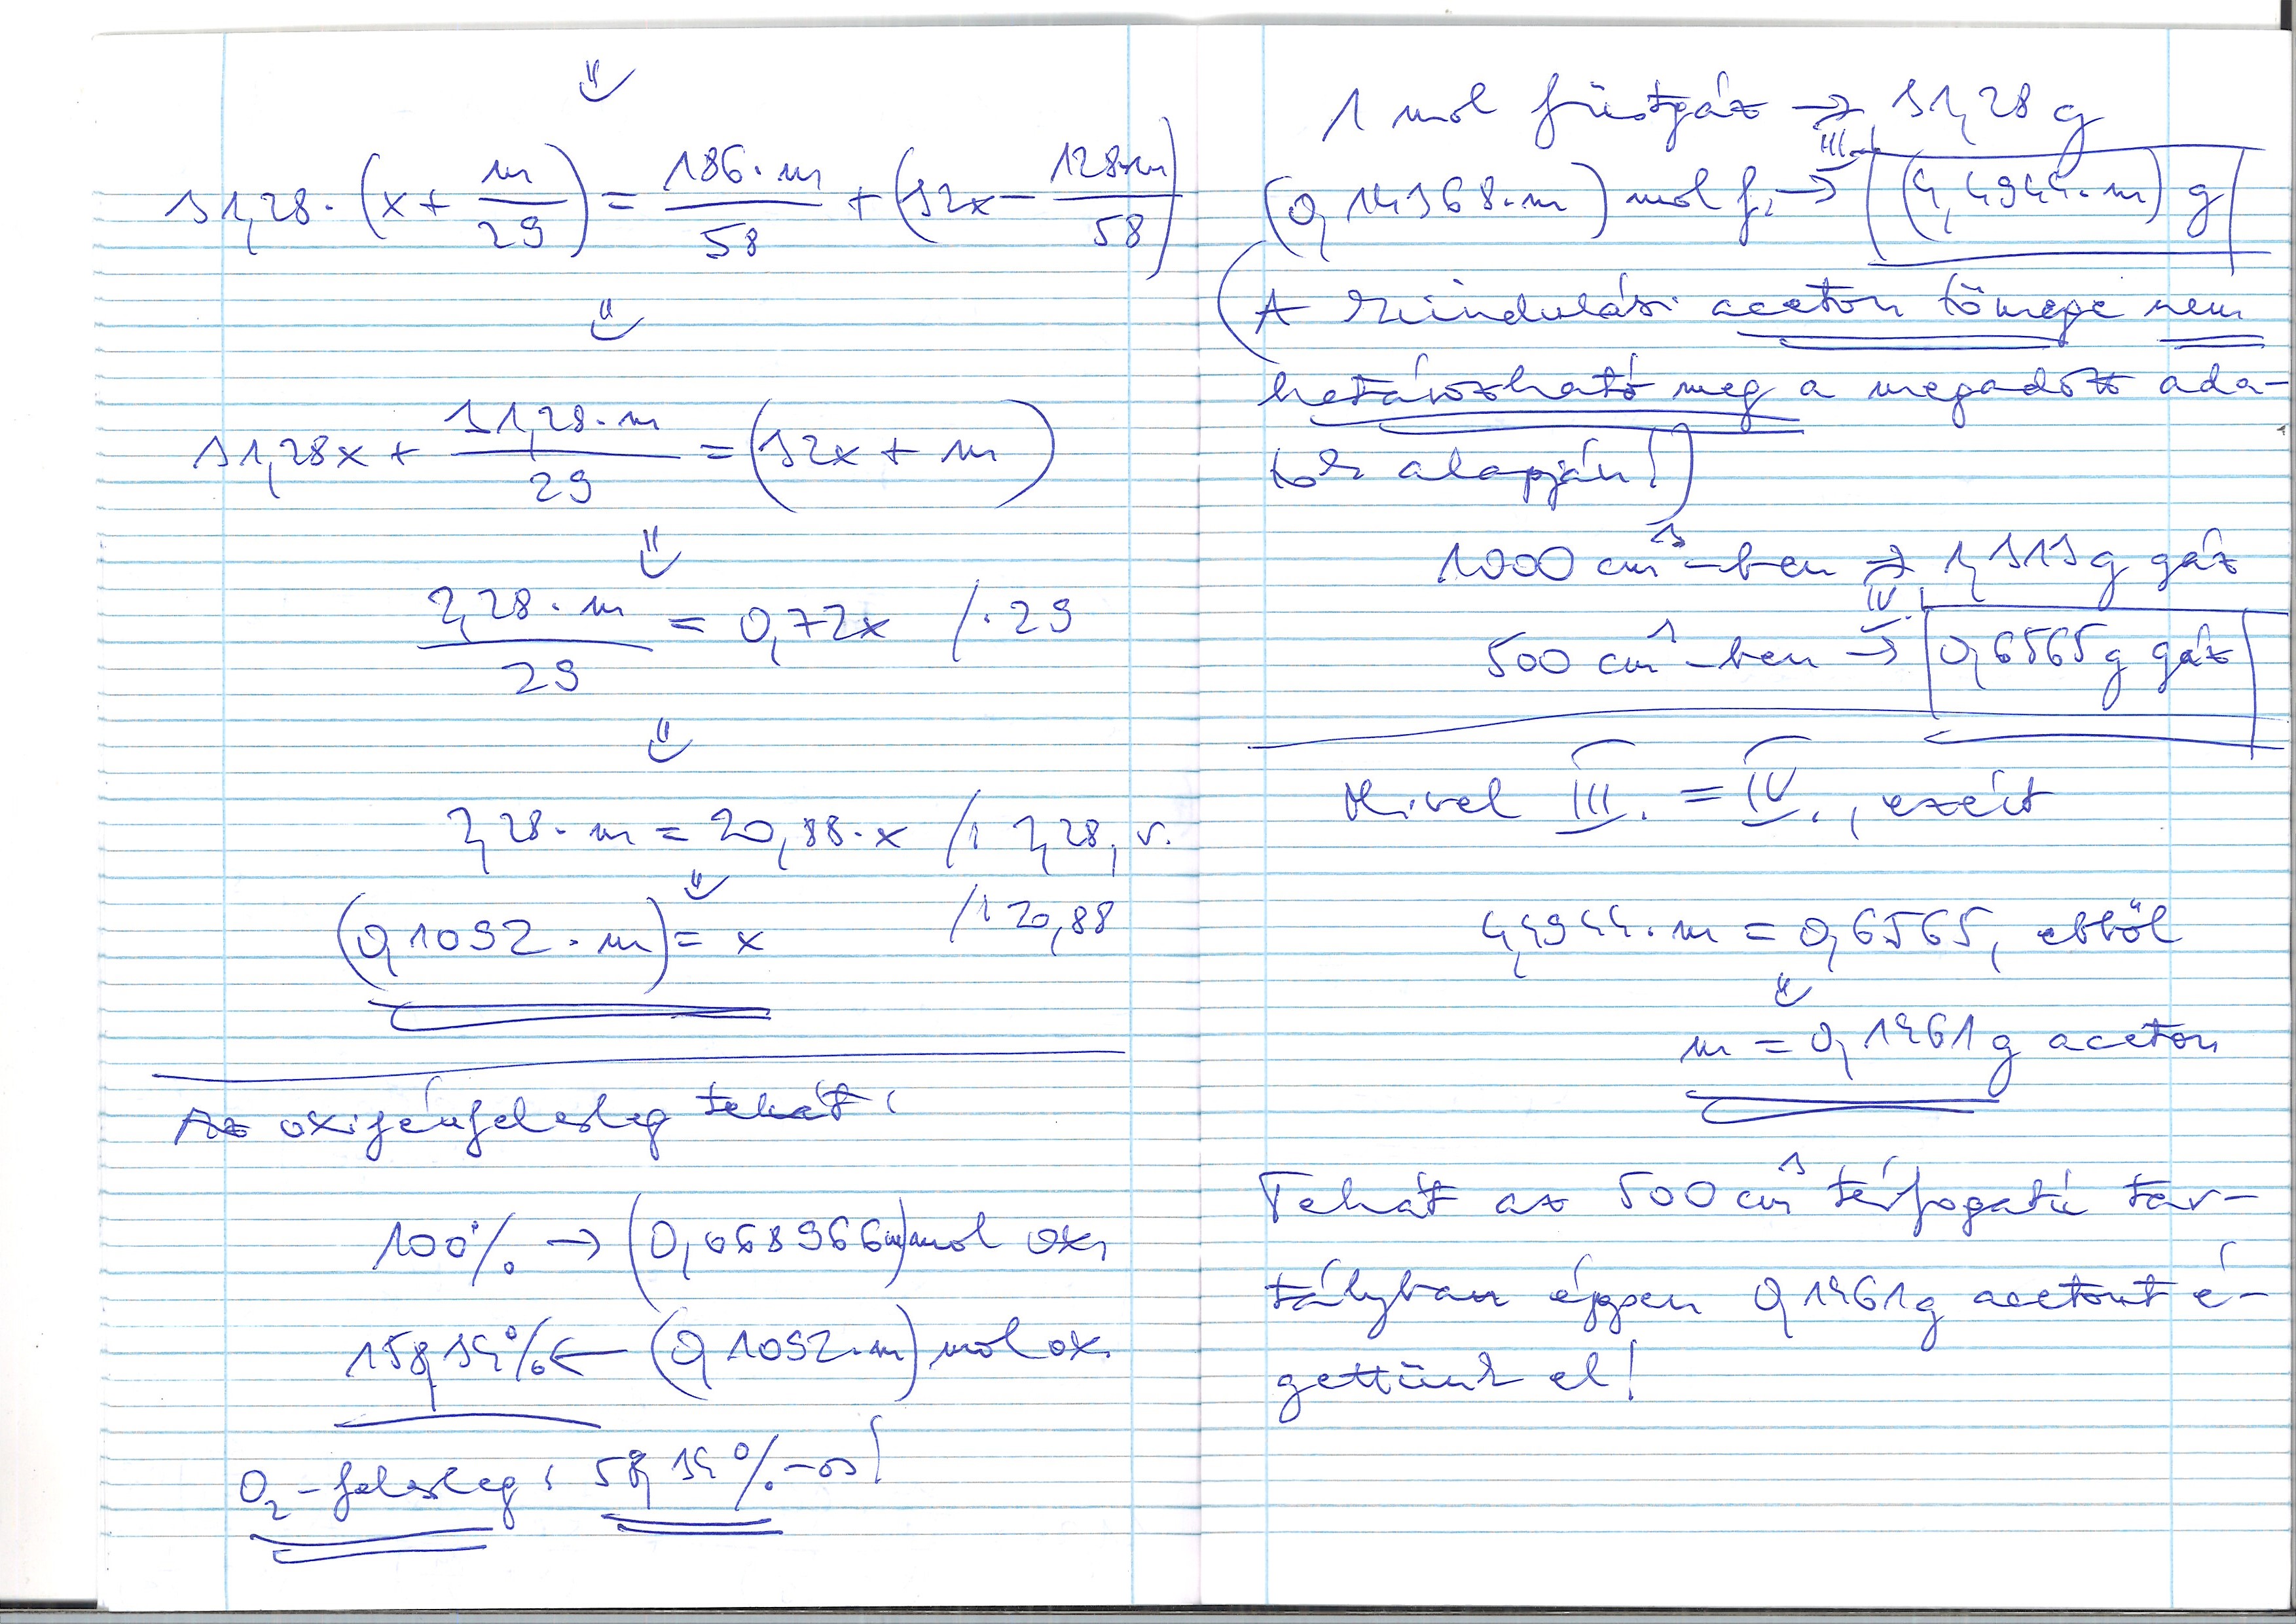 ⇓
31,28 · (x + m/29) = 186·m/58 + (32x − 128·m/58)
⇓
31,28x + 31,28·m/29 = (32x + m)
⇓
2,28·m/29 = 0,72x /·29
⇓
2,28·m = 20,88·x /: 2,28, v.
⇓
(0,1092·m) = x /: 20,88
Az oxigénfelesleg tehát:
100% → (0,068966m) mol ox.
158,34% ← (0,1092·m) mol ox.
O₂-felesleg: 58,34%-os!
1 mol füstgáz → 31,28 g
III.
(0,14368·m) mol f. → (4,4944·m) g
(A kiindulási aceton tömege nem
határozható meg a megadott ada-
tok alapján!)
1000 cm³-ben → 1,313 g gáz
IV.
500 cm³-ben → 0,6565 g gáz
Mivel III. = IV., ezért
4,4944·m = 0,6565, ebből
⇓
m = 0,1461 g aceton
Tehát az 500 cm³ térfogatú tar-
tályban éppen 0,1461 g acetont é-
gettünk el!